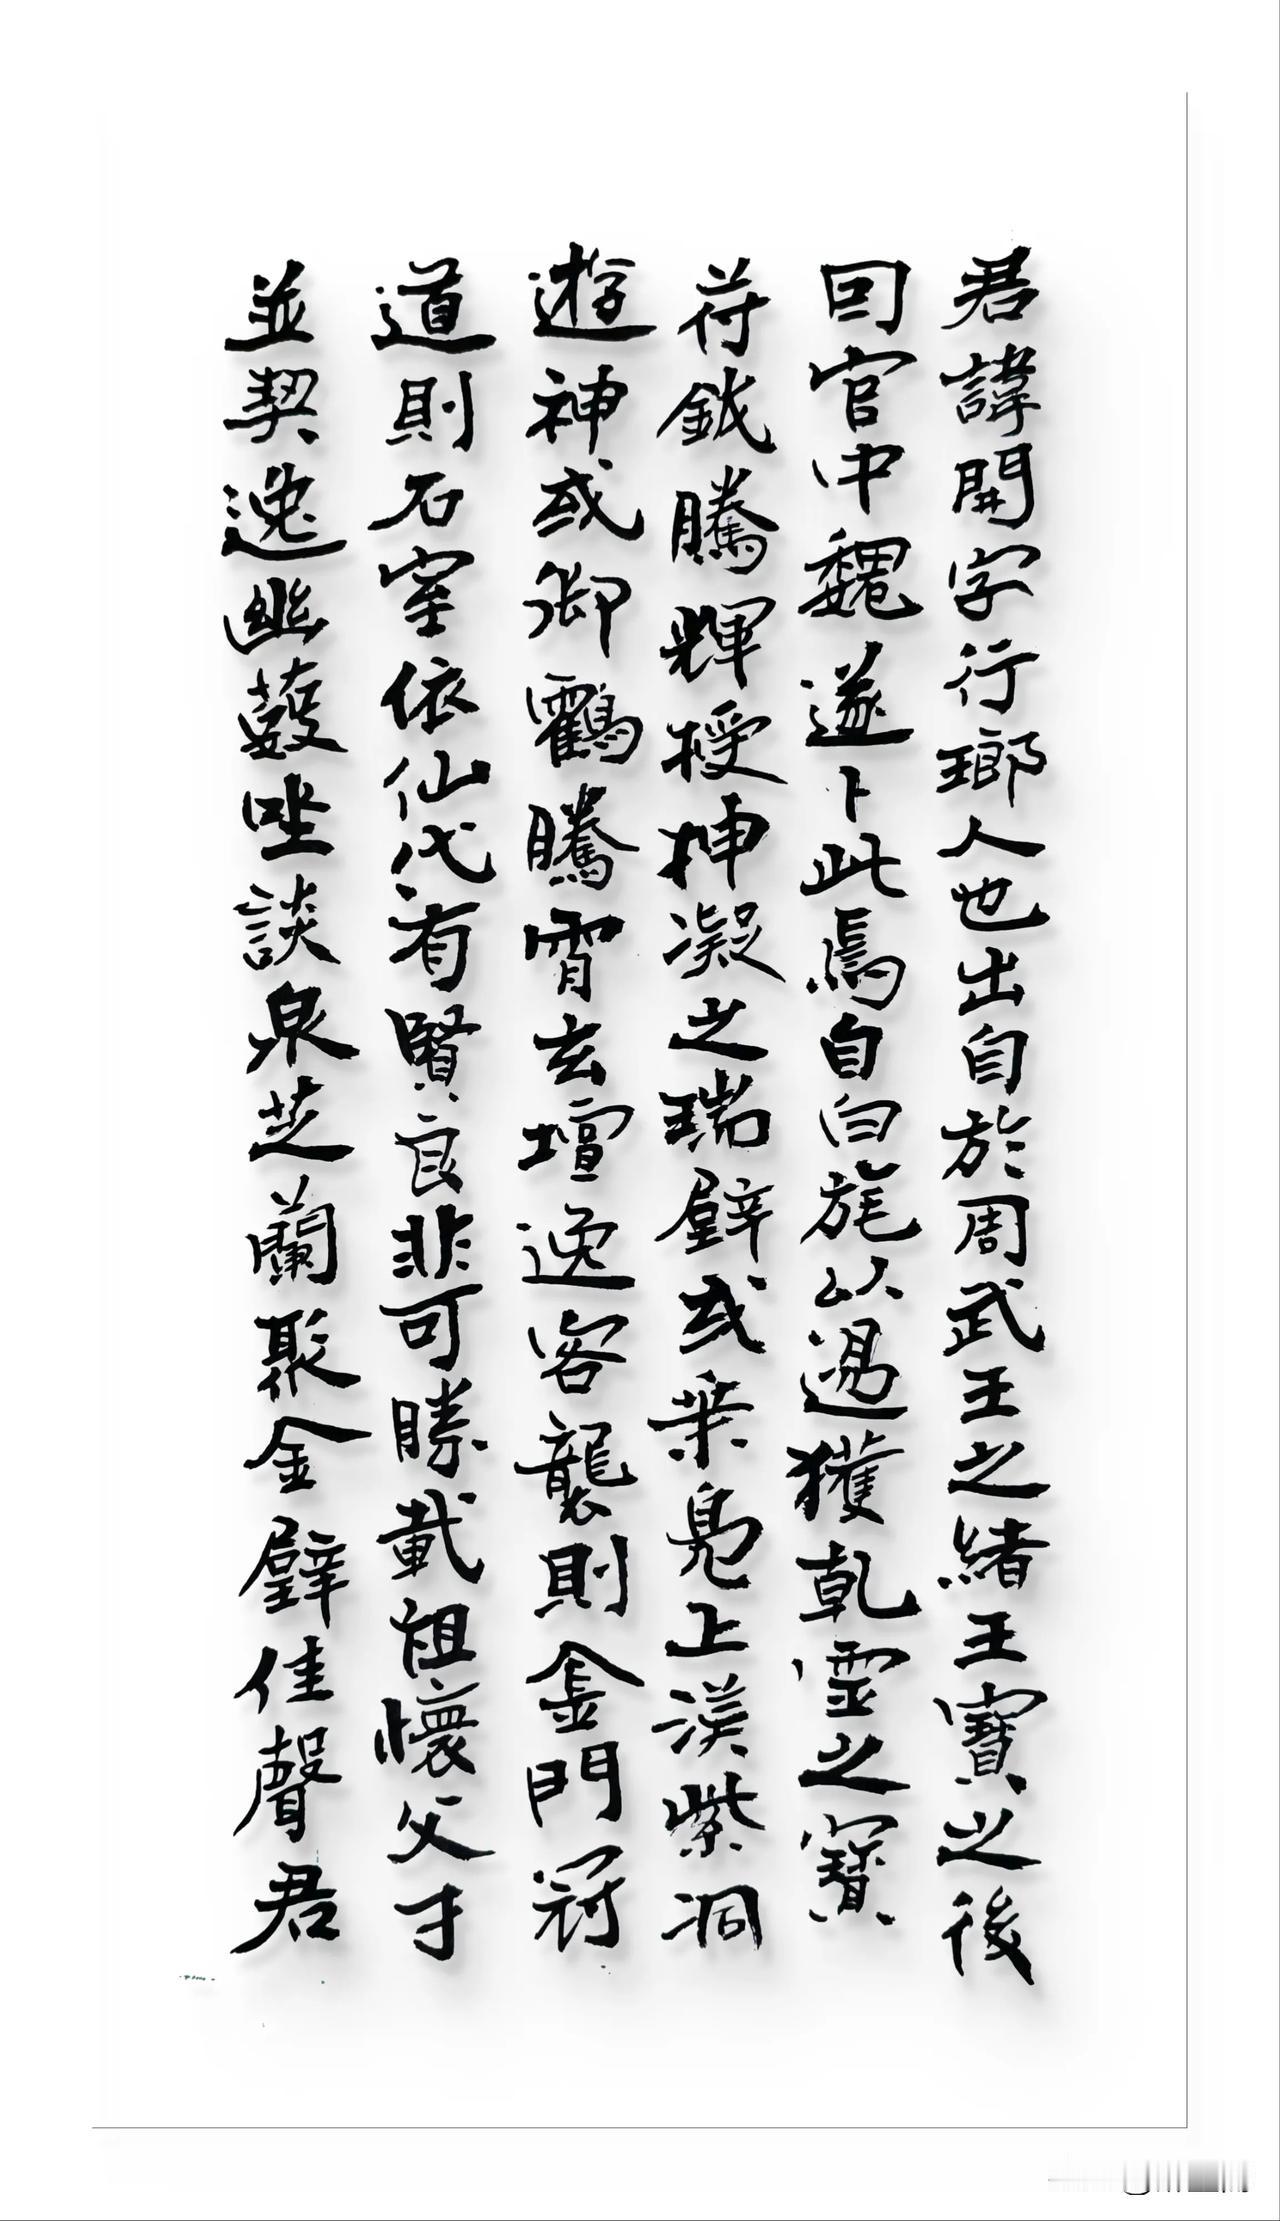 君諱開字行瑯人也出自於周武王之緒王寶之後
回官中魏遂卜此焉自白旄以過獲乾靈之寶
苻鉞騰輝授神凝之瑞璧或乘鳧上渼紫洞
遊神或御鸖騰霄玄壇逸客襲則金門冠
道則石室依仙代有賢良非可勝載祖懷父才
並契逸幽薮坐談泉芝蘭聚金璧佳聲君